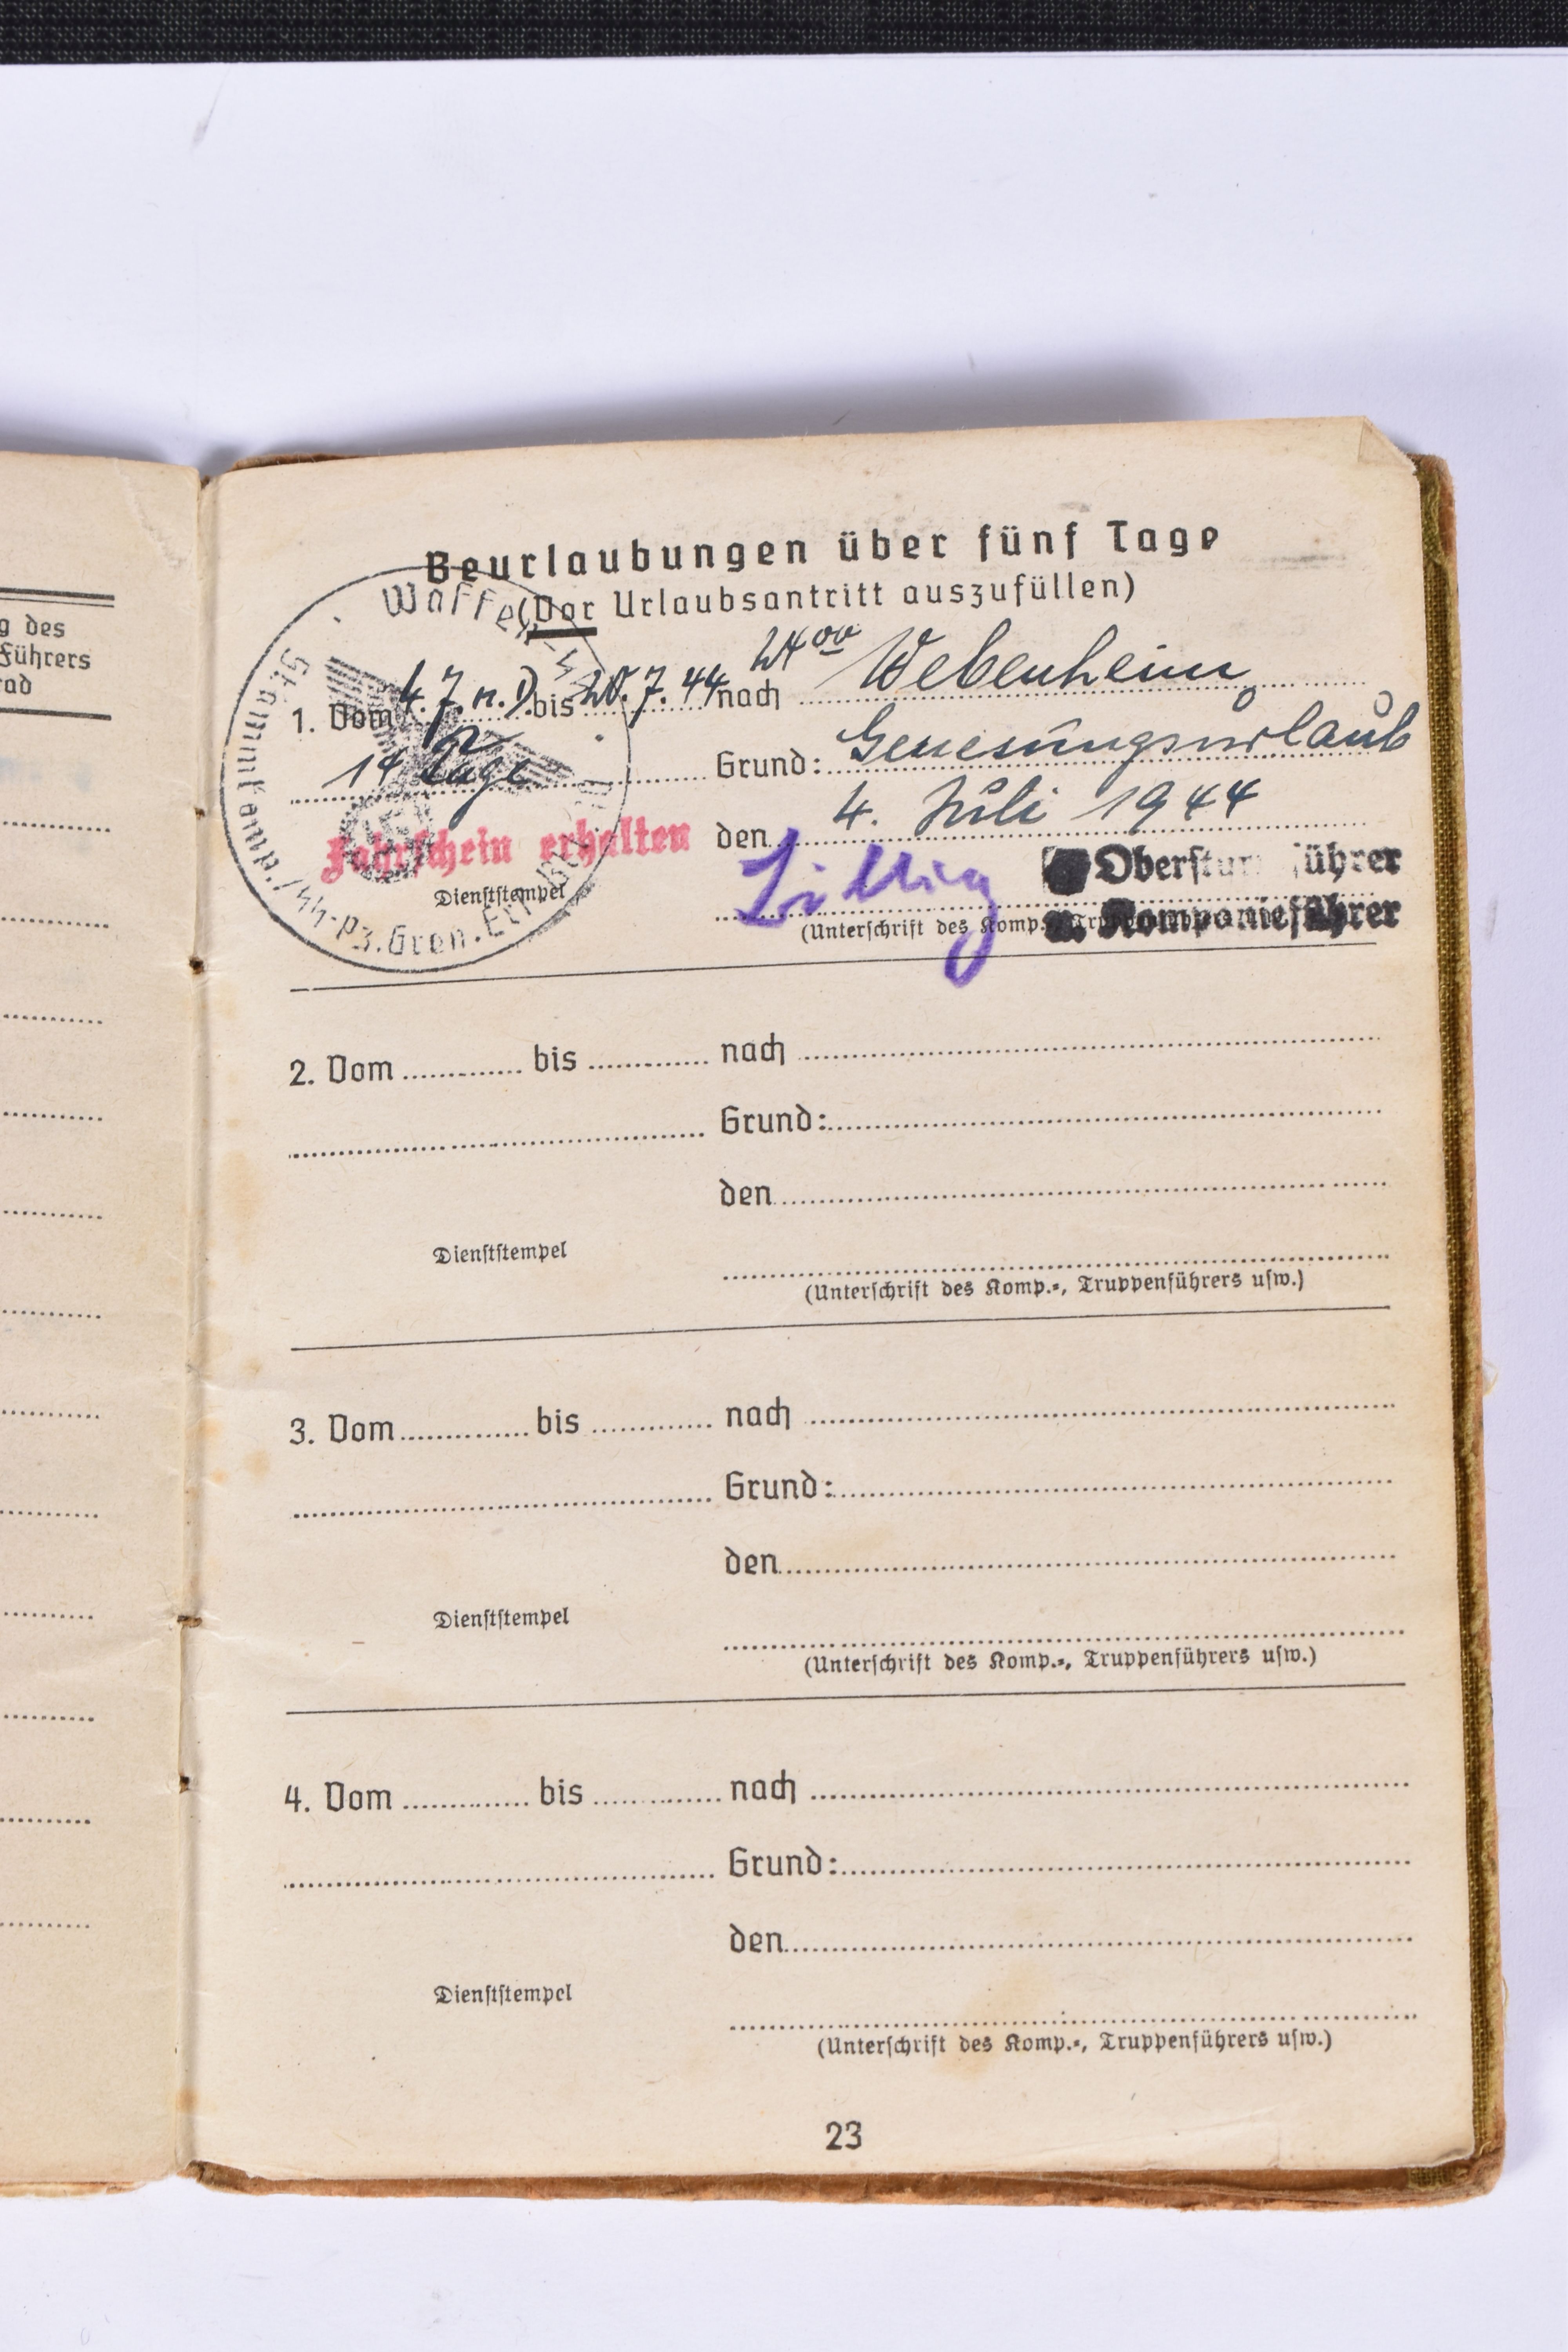 g des
Führers
rad
Beurlaubungen über fünf Tage
(Vor Urlaubsantritt auszufüllen)
1. Vom 4.7. n. D. bis 20.7.44 24⁰⁰ nach Webenheim
14 Tage Grund: Genesungsurlaub
den 4. Juli 1944
Fahrschein erhalten
Dienststempel
Waffen-SS
Stammkomp./SS-Pz.Gren.
Oberstur führer
u. Kompanieführer
(Unterschrift des Komp.
2. Vom bis nach
Grund:
den
Dienststempel
(Unterschrift des Komp.-, Truppenführers usw.)
3. Vom bis nach
Grund:
den
Dienststempel
(Unterschrift des Komp.-, Truppenführers usw.)
4. Vom bis nach
Grund:
den
Dienststempel
(Unterschrift des Komp.-, Truppenführers usw.)
23